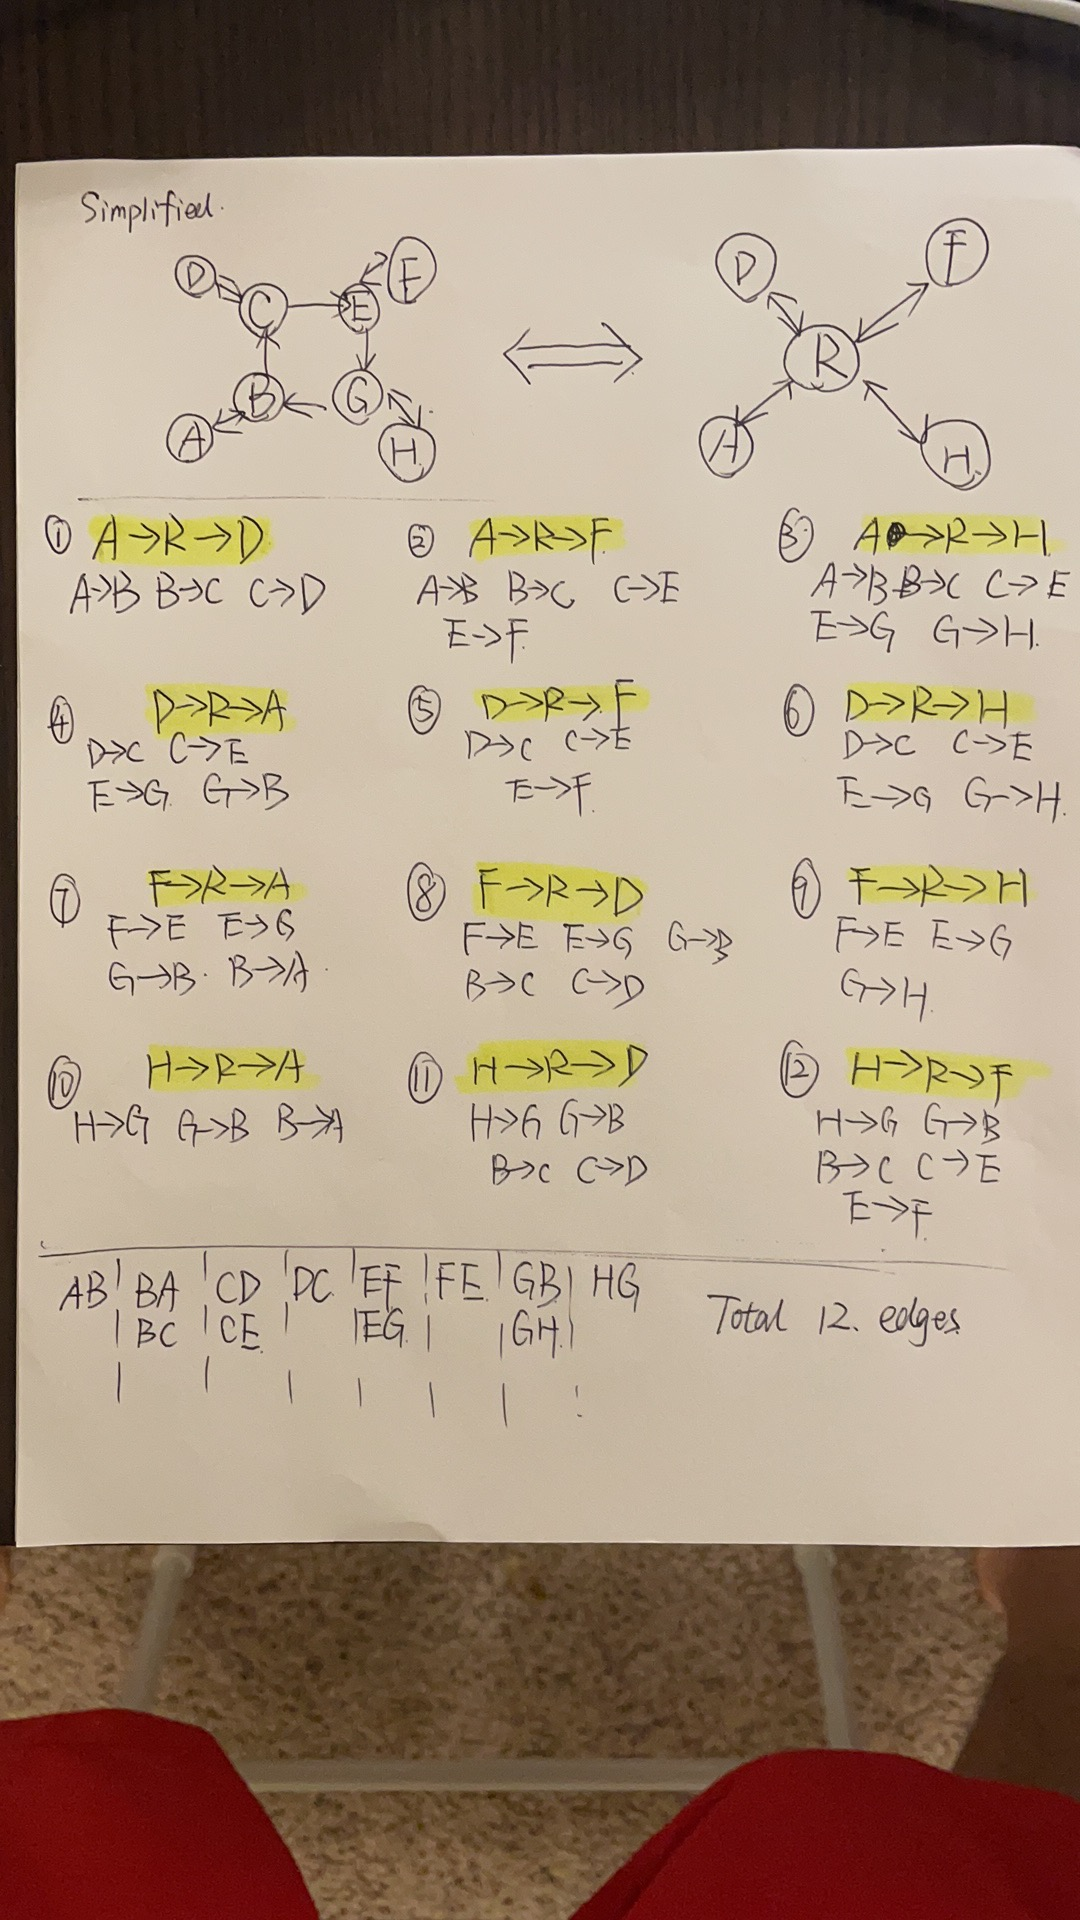 Simplified.
D C E F
B G
A H
D F
R
A H
① A→R→D
A→B B→C C→D
② A→R→F
A→B B→C C→E
E→F
③ A→R→H
A→B B→C C→E
E→G G→H.
④ D→R→A
D→C C→E
E→G G→B
⑤ D→R→F
D→C C→E
E→F
⑥ D→R→H
D→C C→E
E→G G→H.
⑦ F→R→A
F→E E→G
G→B B→A
⑧ F→R→D
F→E E→G G→B
B→C C→D
⑨ F→R→H
F→E E→G
G→H.
⑩ H→R→A
H→G G→B B→A
⑪ H→R→D
H→G G→B
B→C C→D
⑫ H→R→F
H→G G→B
B→C C→E
E→F
AB BA CD DC EF FE GB HG
BC CE EG GH
Total 12. edges